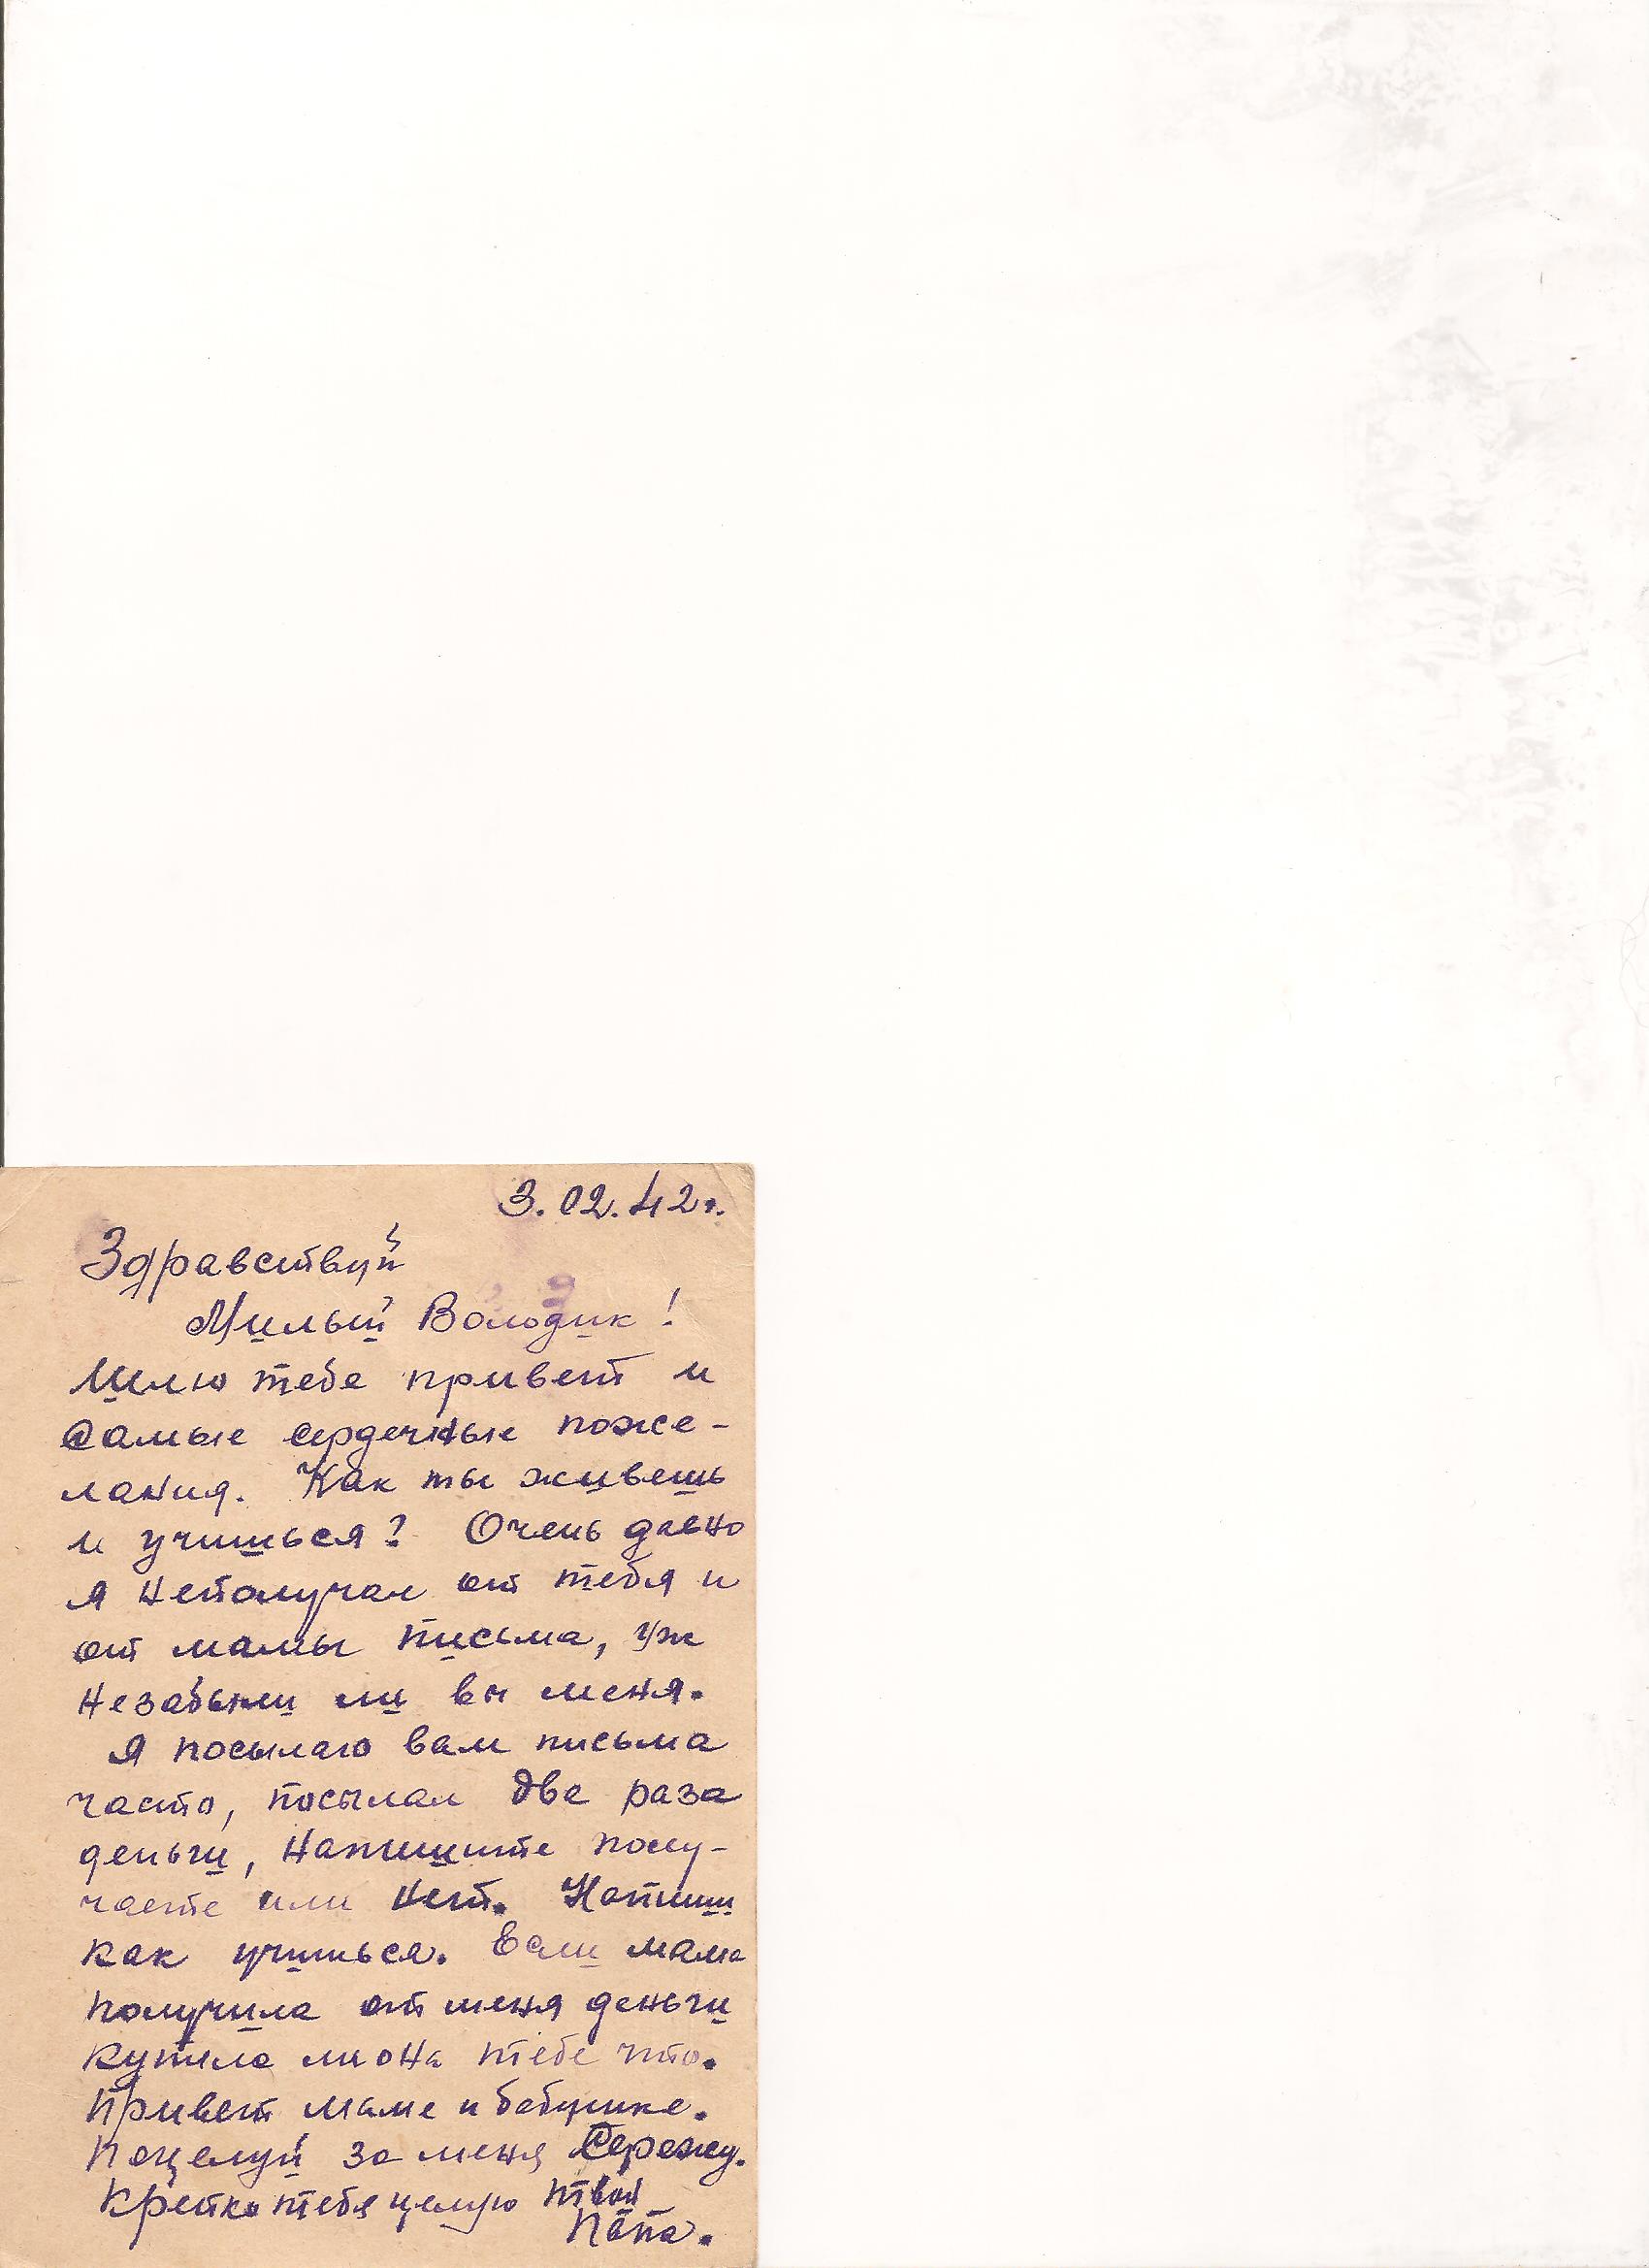 3.02.42г.
Здравствуй
Милый Володик!
Шлю тебе привет и
самые сердечные поже-
лания. Как ты живешь
и учишься? Очень давно
я неполучал от тебя и
от мамы письма, уж
незабыли ли вы меня.
Я посылаю вам письма
часто, посылал две раза
деньги, напишите полу-
чаете или нет. Напиши
как учишься. Если мама
получила от меня деньги
купила ли она тебе что.
Привет маме и бабушке.
Поцелуй за меня Сережу.
Крепко тебя целую твой
папа.